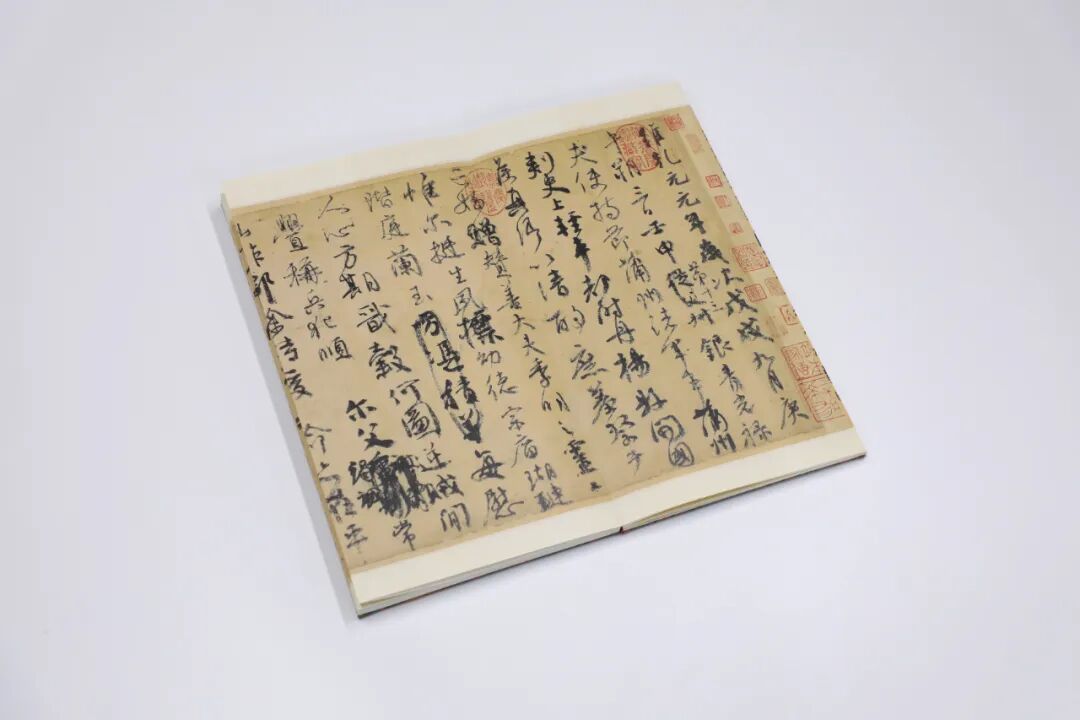 維乾元元年歲次戊戌九月庚
午朔三日壬申第十三叔銀青光祿
夫使持節蒲州諸軍事蒲州
刺史上輕車都尉丹楊縣開國
侯真卿以清酌庶羞祭于
亡姪贈贊善大夫季明之靈曰
惟爾挺生夙標幼德宗廟瑚璉
階庭蘭玉方憑積善每慰
人心方期戩穀何圖逆賊間
釁稱兵犯順爾父竭誠常
山作郡余時受命亦在平